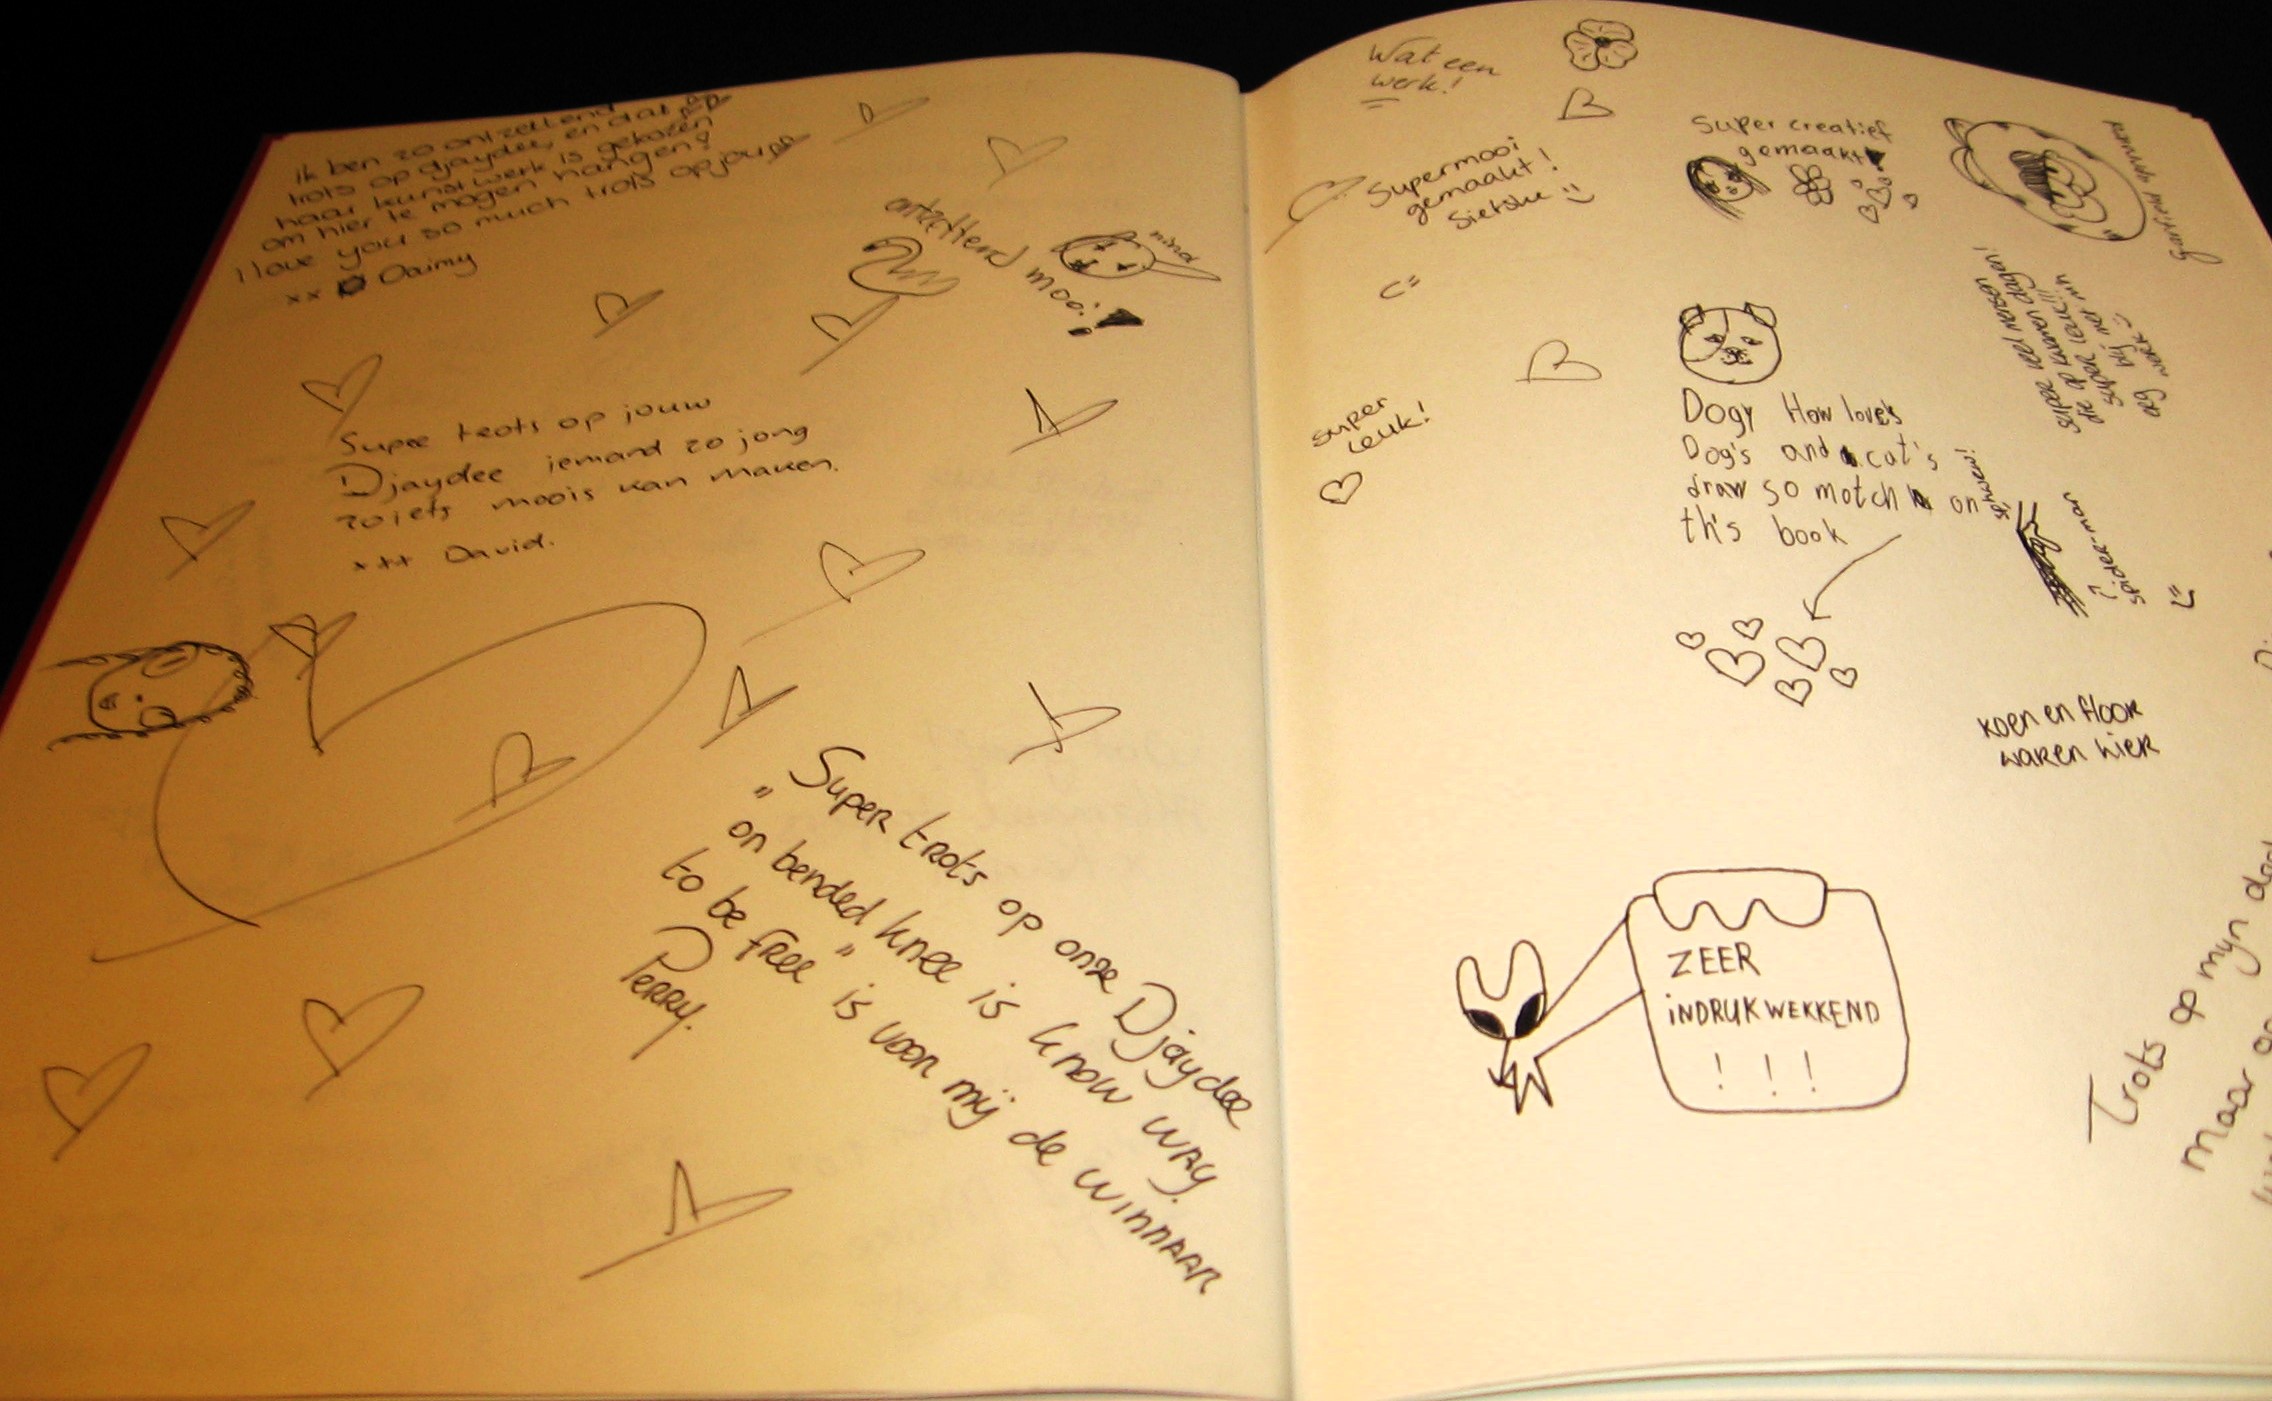 Ik ben zo ontzettend
trots op djaydee, en dat
haar kunstwerk is gekozen
om hier te mogen hangen!
I love you so much trots op jou
xx Daimy
ontzettend mooi!
nina
Super trots op jouw
Djaydee iemand zo jong
zoiets moois kan maken.
xxx David.
Super trots op onze Djaydee
„on bended knee is know way
to be free" is voor mij de winnaar
Perry.
Wat een
werk!
Supermooi
gemaakt!
Sietske :)
Super creatief
gemaakt
Garfield
super
leuk!
Dogy How love's
Dog's and cat's
draw so motch on
th's book
super veel mensen
die op kunnen dagen!
super leuk!!!
spider-man
Koen en Floor
waren hier
ZEER
iNDRUKWEKKEND
! ! !
Trots op mijn
maar